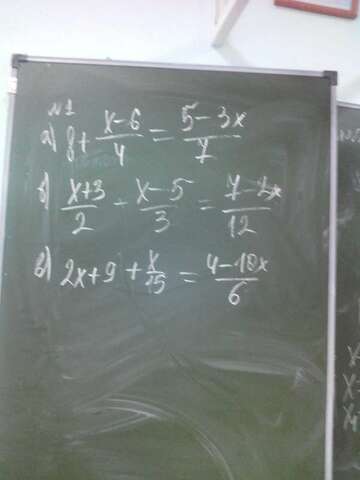 №1
а) 8 + (x-6)/4 = (5-3x)/7
б) (x+3)/2 - (x-5)/3 = (7-2x)/12
в) 2x+9 + x/15 = (4-18x)/6